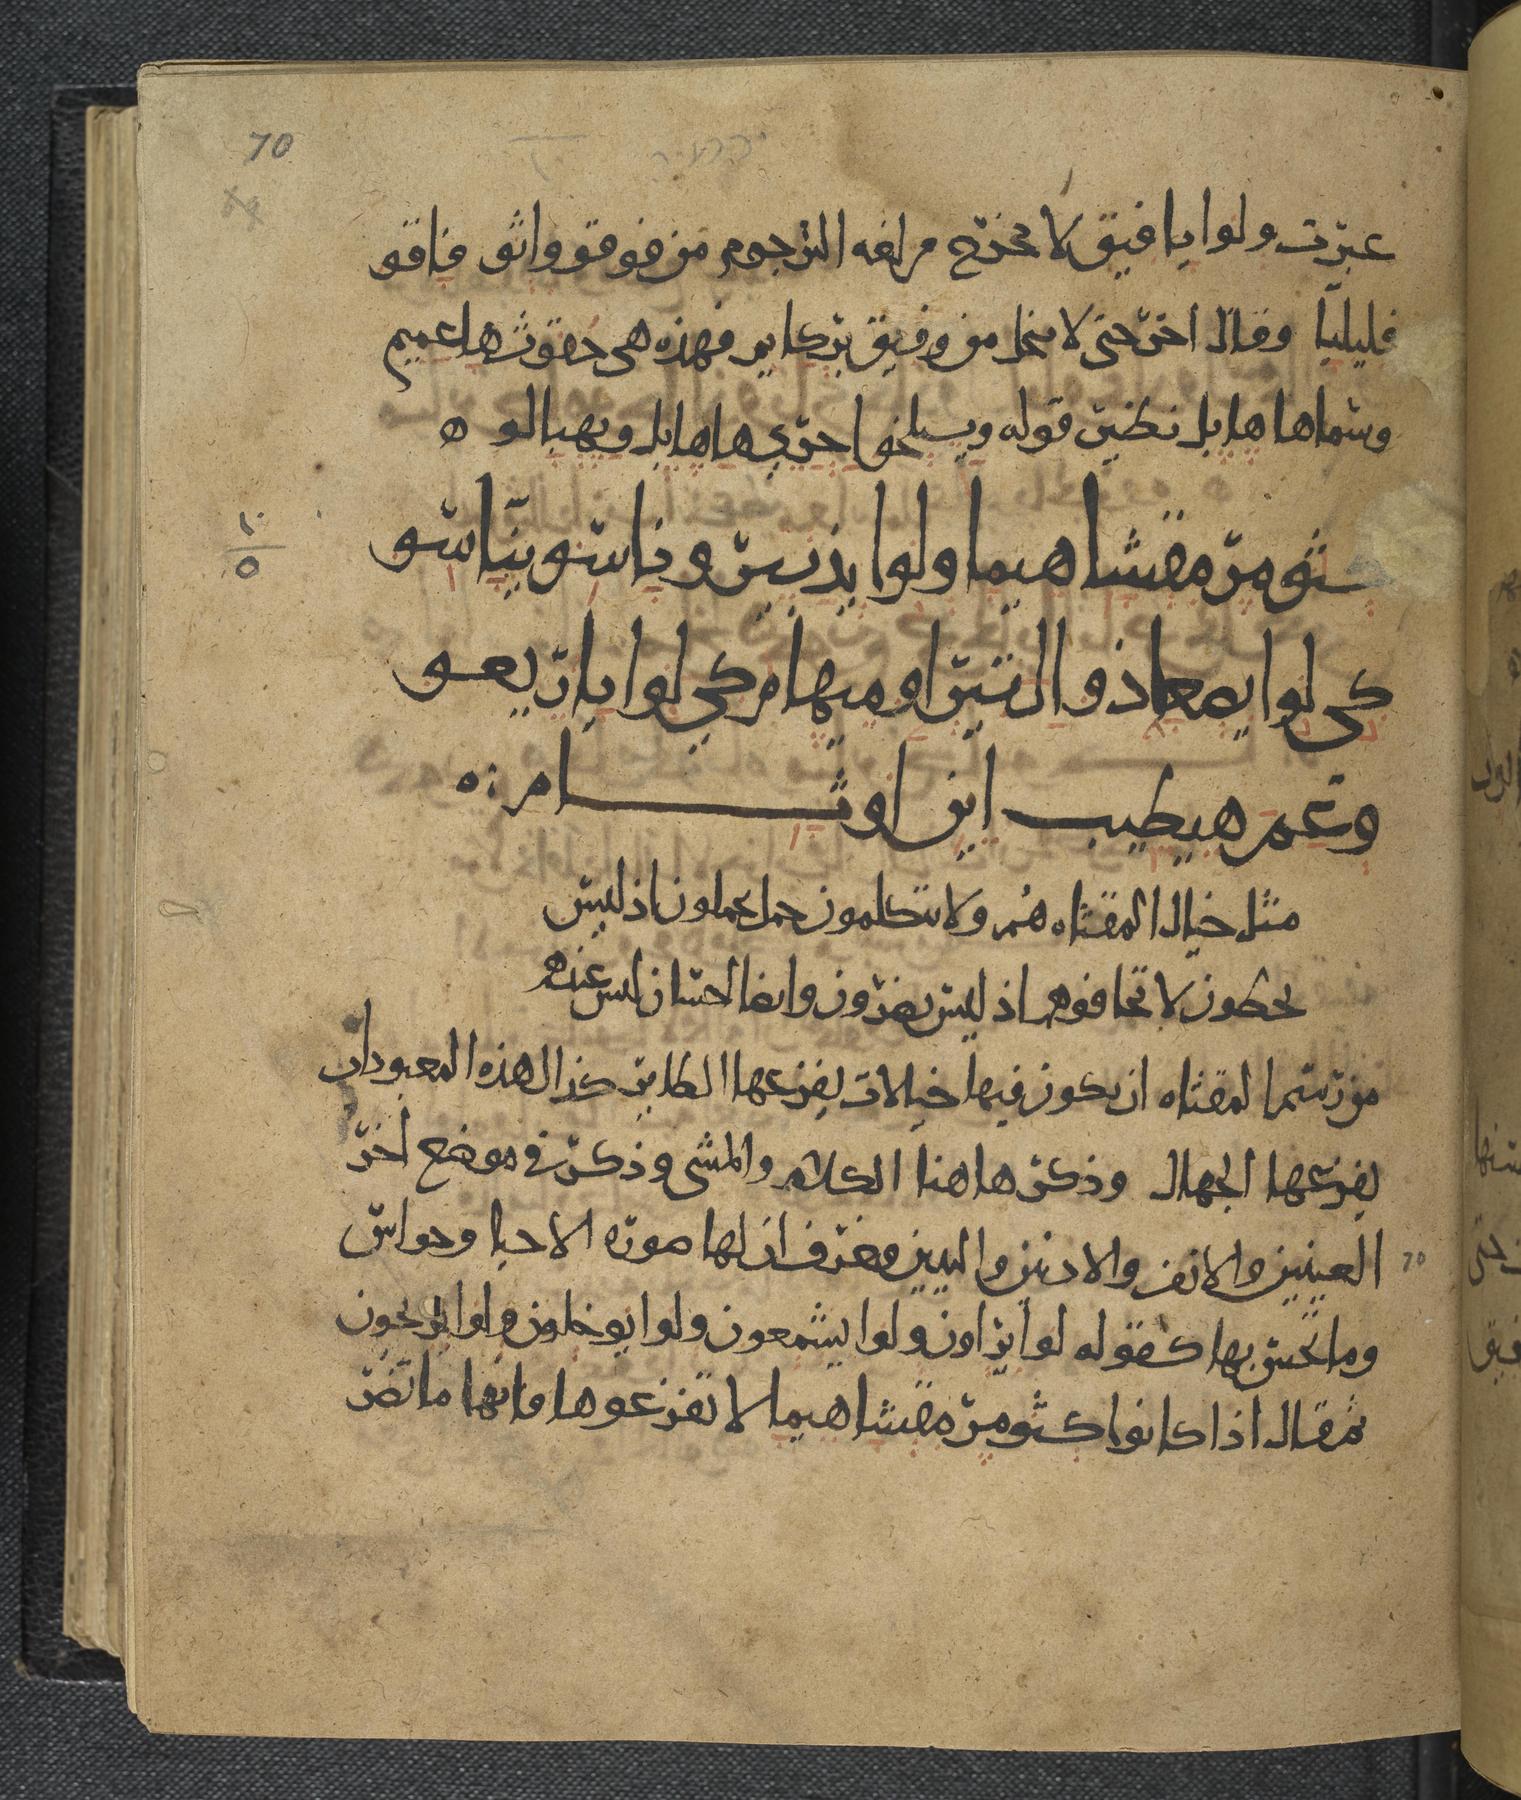 70
عبرت ولوا يا فيق لا مخرج مر لغه الترجوم من فوقو واثو فاقو
فليليا وقال اخر حتى لا من وفيق بركايم فهذه هى حقوث هاعميم
وسماها هابل نظير قوله ويسلخوا احري هاهابل ويهبالو ه
١٠
٥
كثومر مقشا هيما ولوا يذبيرو ناسو ينّاسو
كى لوا يصعاذو ال تيراو ميهام كي لوا يا ريعو
وغم هيطيب اين اوثام ه
مثل خيال المقثاه هم ولا يتكلمون حمل يحملون اذ ليس
يخطون لا تخافوهم اذ ليس يضرون وايضا احسان ليس عندهم
من رسم المقثاه ان يكون فيها خيالات يفزعها الطاير كذال هذه المعبودات
يفزعها الجهال وذكر هاهنا الكلام والمشى وذكر فى موضع اخر
العينين والانف والاذنين واليدين معرف ان لها صوره الاحيا وحواس
70
وما تحس بها كقوله لوا يراون ولوا يشمعون ولوا يوخلون ولوا يريحون
ثم قال اذا كانوا كثومر مقشا هيما لا تفزعوها فانها ما تضر